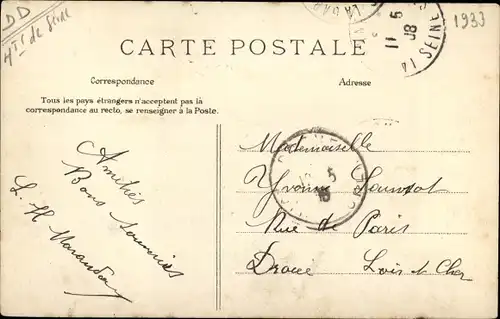 DD
Hts de Seine
1933
11 5
08
LA SEINE
CARTE POSTALE
Correspondance
Adresse
Tous les pays étrangers n'acceptent pas la
correspondance au recto, se renseigner à la Poste.
Amitiés
Bons
L. H.
Mademoiselle
Yvonne
Rue de Paris
Droué Loir et Cher
5